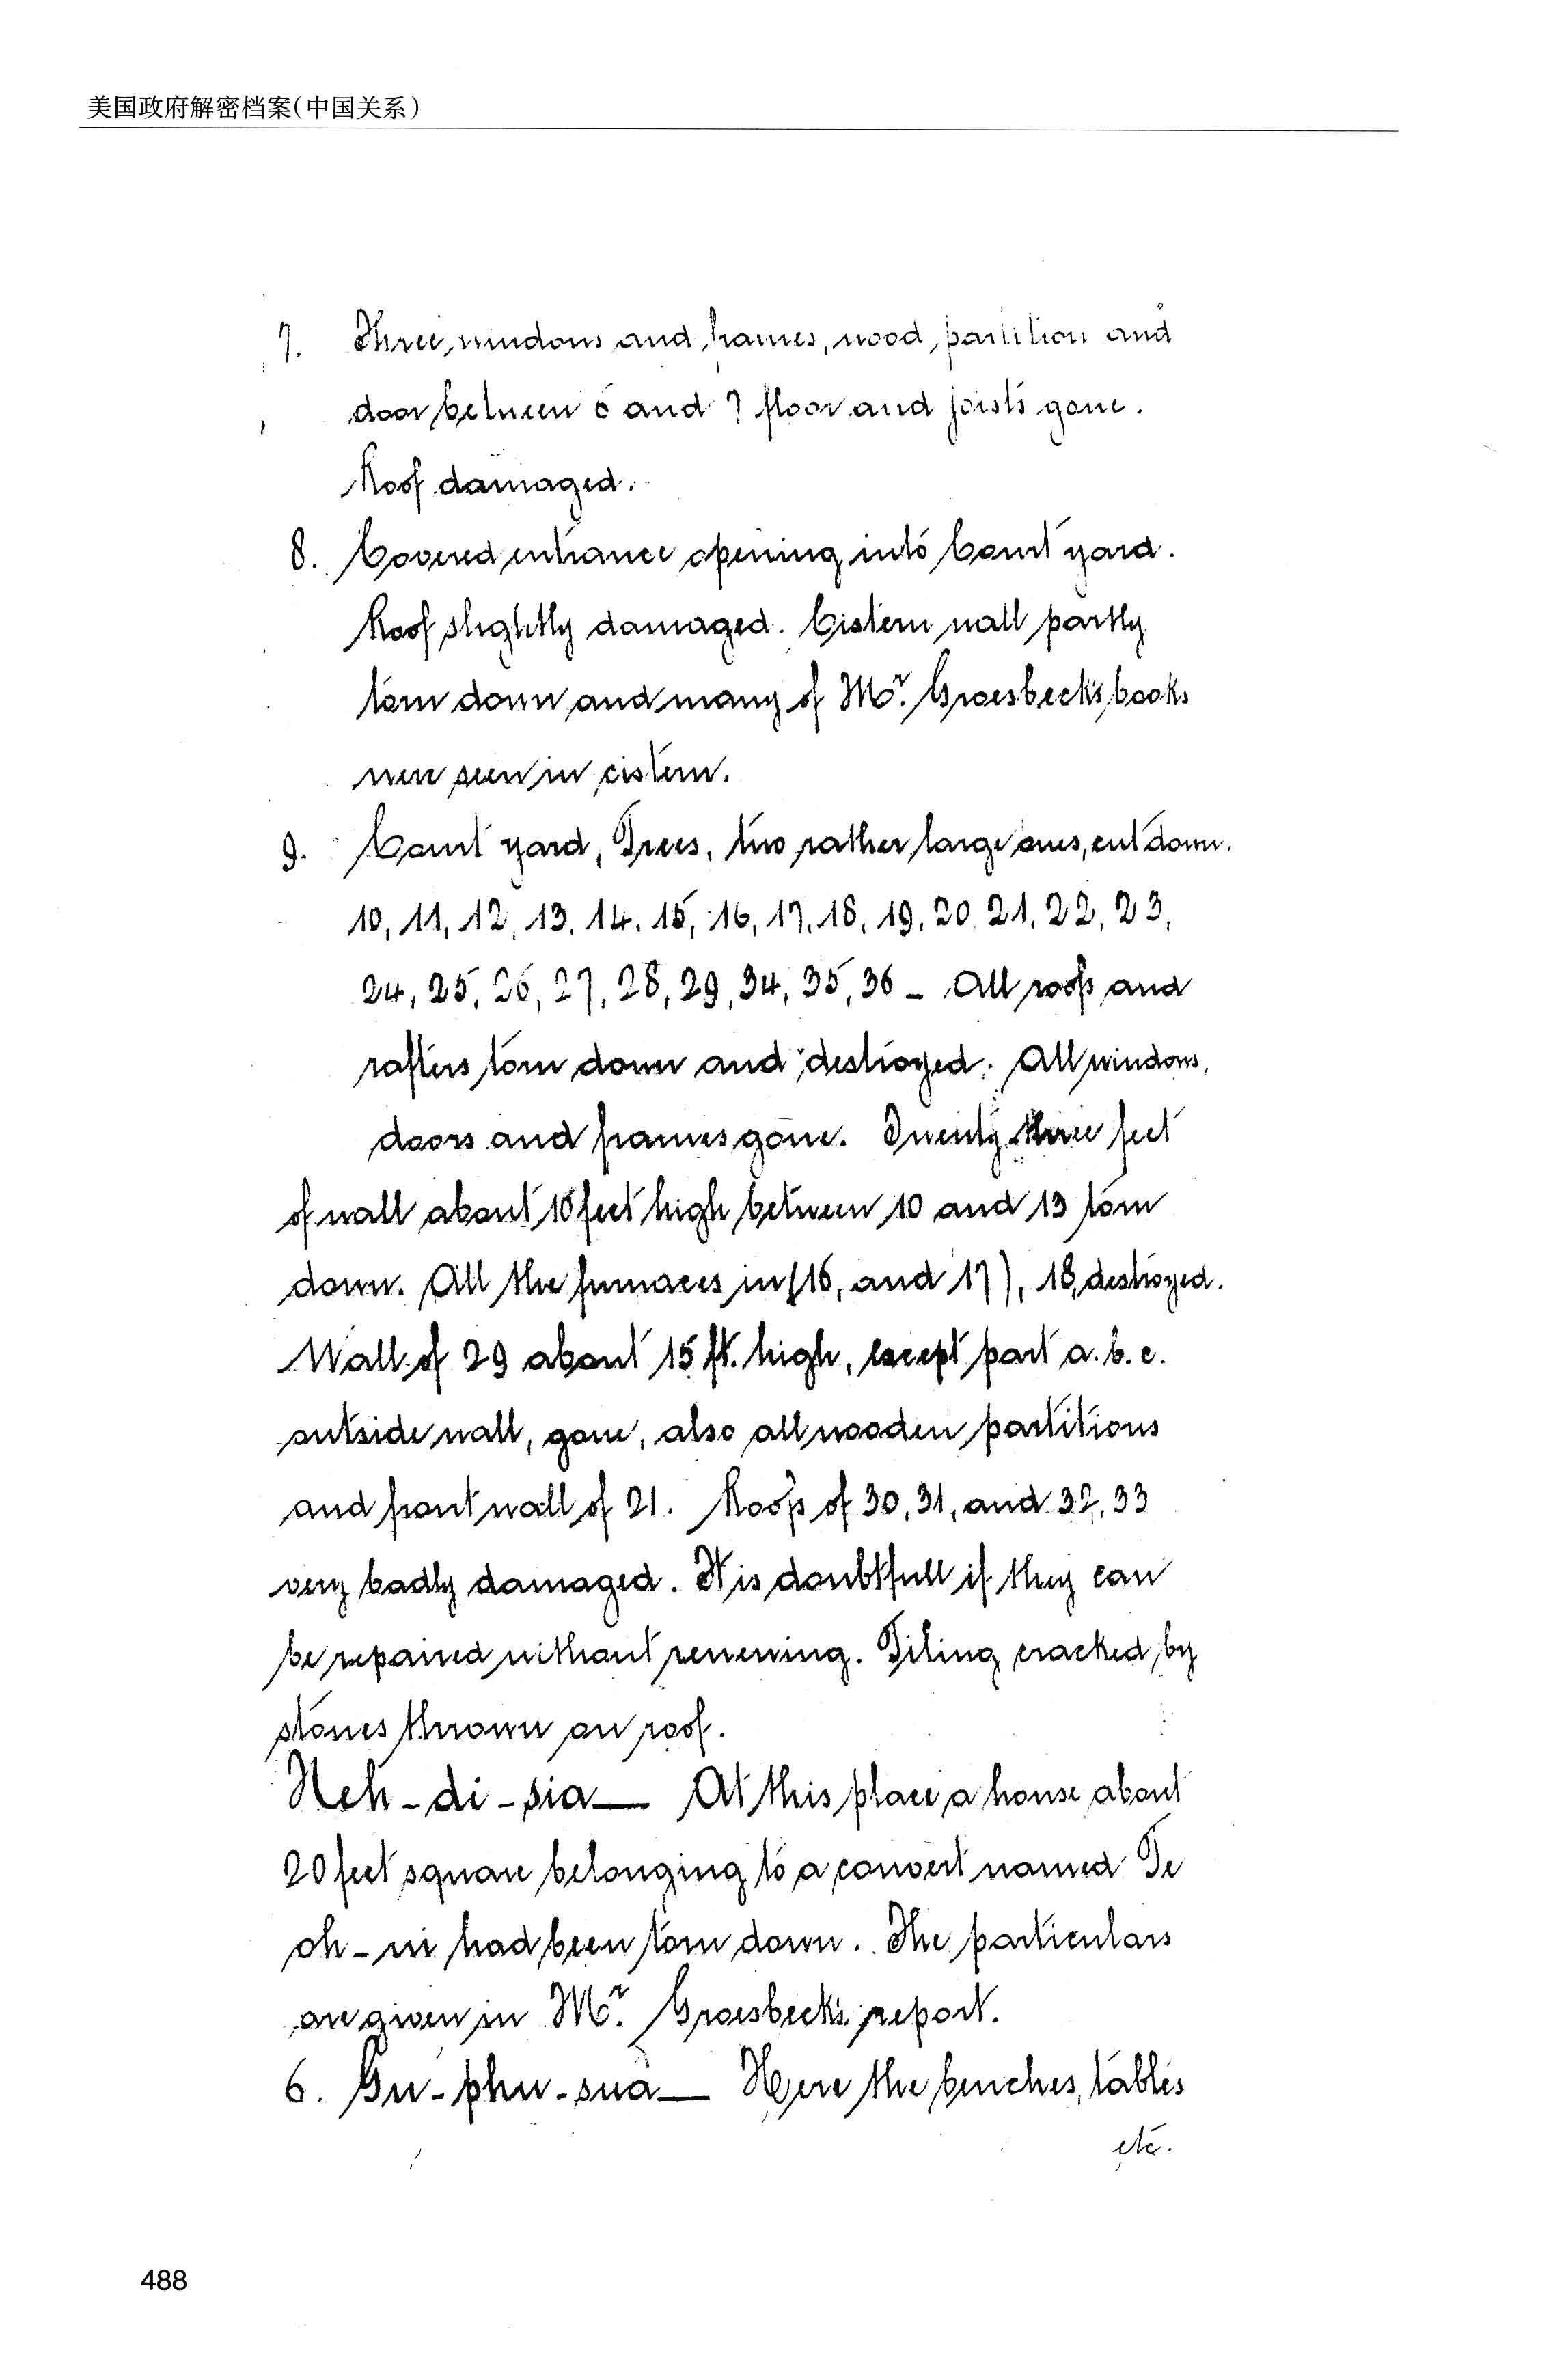 美国政府解密档案(中国关系)
7. Three windows and frames, wood partition and
door between 6 and 7 floor and joists gone.
Roof damaged.
8. Covered entrance opening into Court yard.
Roof slightly damaged. Cistern wall partly
torn down and many of Mr. Groesbeck's books
were seen in cistern.
9. Court yard, Trees, two rather large ones, cut down.
10, 11, 12, 13, 14, 15, 16, 17, 18, 19, 20, 21, 22, 23,
24, 25, 26, 27, 28, 29, 34, 35, 36 — All roofs and
rafters torn down and destroyed. All windows,
doors and frames gone. Twenty three feet
of wall about 10 feet high between 10 and 13 torn
down. All the furnaces in (16, and 17), 18, destroyed.
Wall of 29 about 15 ft. high, except part a. b. c.
outside wall, gone, also all wooden partitions
and front wall of 21. Roofs of 30, 31, and 32, 33
very badly damaged. It is doubtfull if they can
be repaired without renewing. Tiling cracked by
stones thrown on roof.
Heh-di-sia — At this place a house about
20 feet square belonging to a convert named Te
oh-ni had been torn down. The particulars
are given in Mr. Groesbeck's report.
6. Gu-phu-sua — Here the benches, tables
etc.
488